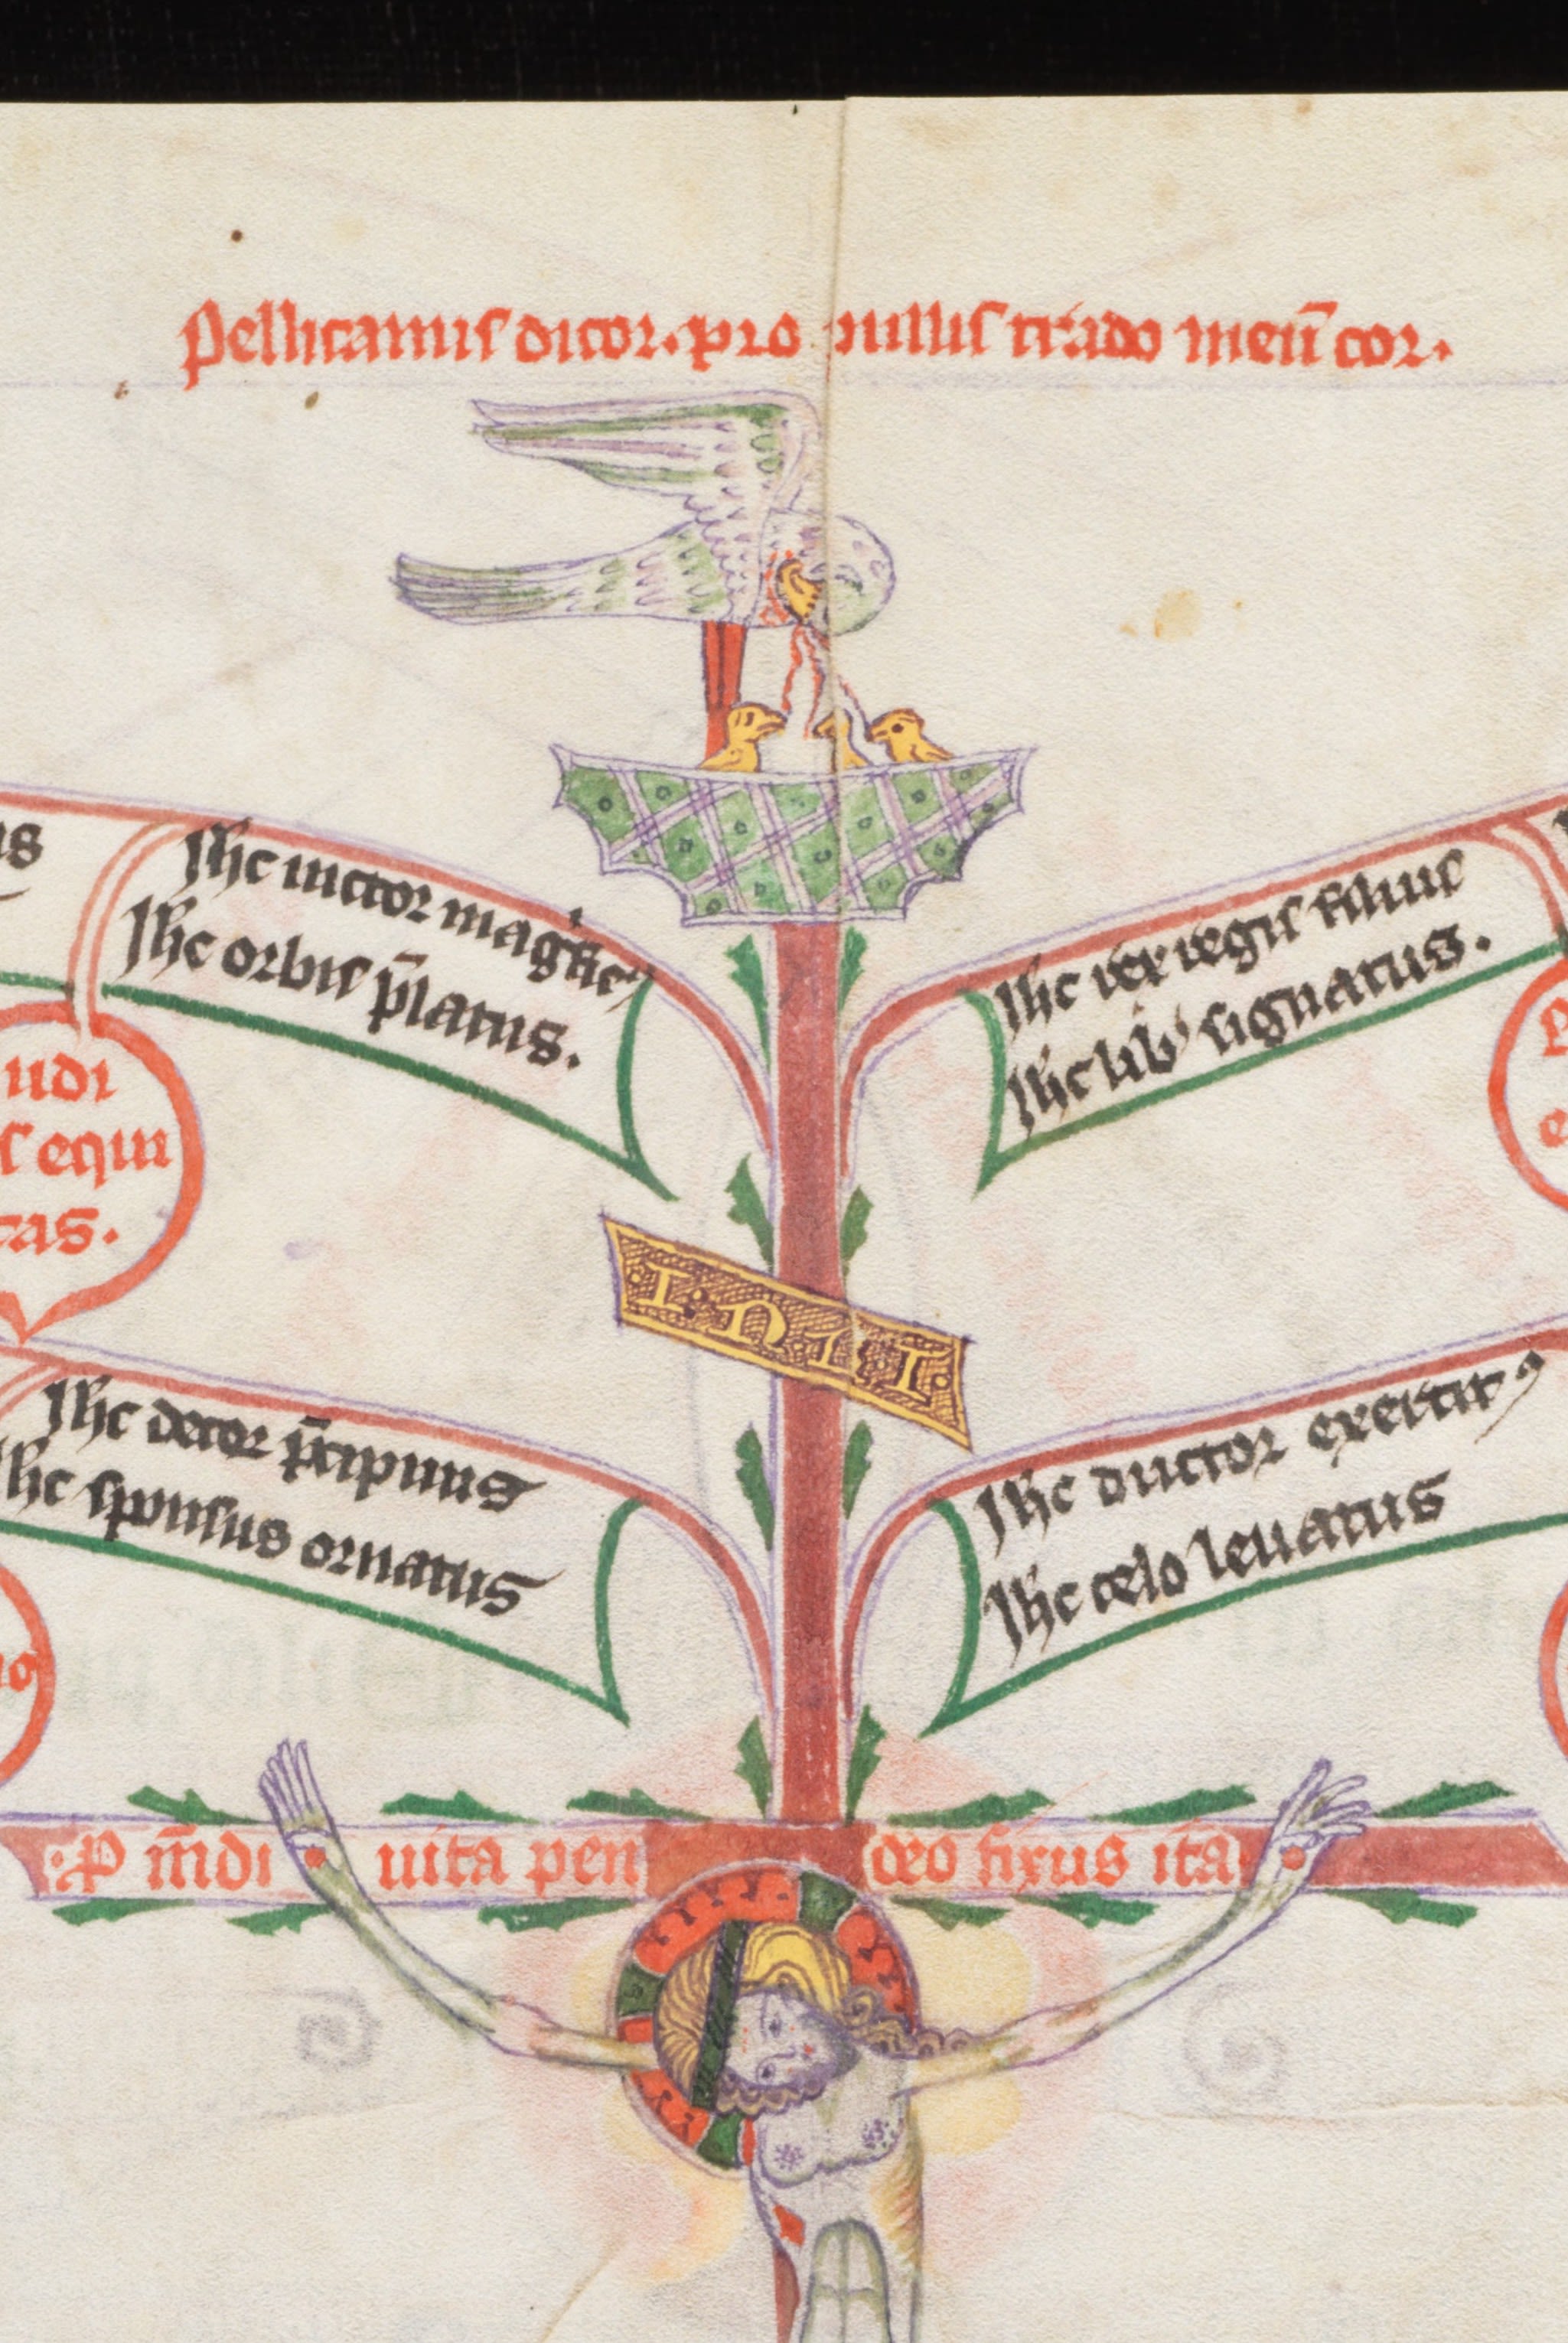 Pellicanus dicor. pro pullis trado meū cor.
us
Ih̄c uictor magific᾽
Ih̄c orbis p̄latus.
Ih̄c rex regis filius
Ih̄c lib᾽ signatus.
udi
s equi
tas.
e
I·N·R·I·
Ih̄c decor p̄cipuus
Ih̄c sponsus ornatus
Ih̄c ductor exercit᾽
Ih̄c celo leuatus
·P m̄di uita pen deo fixus ita